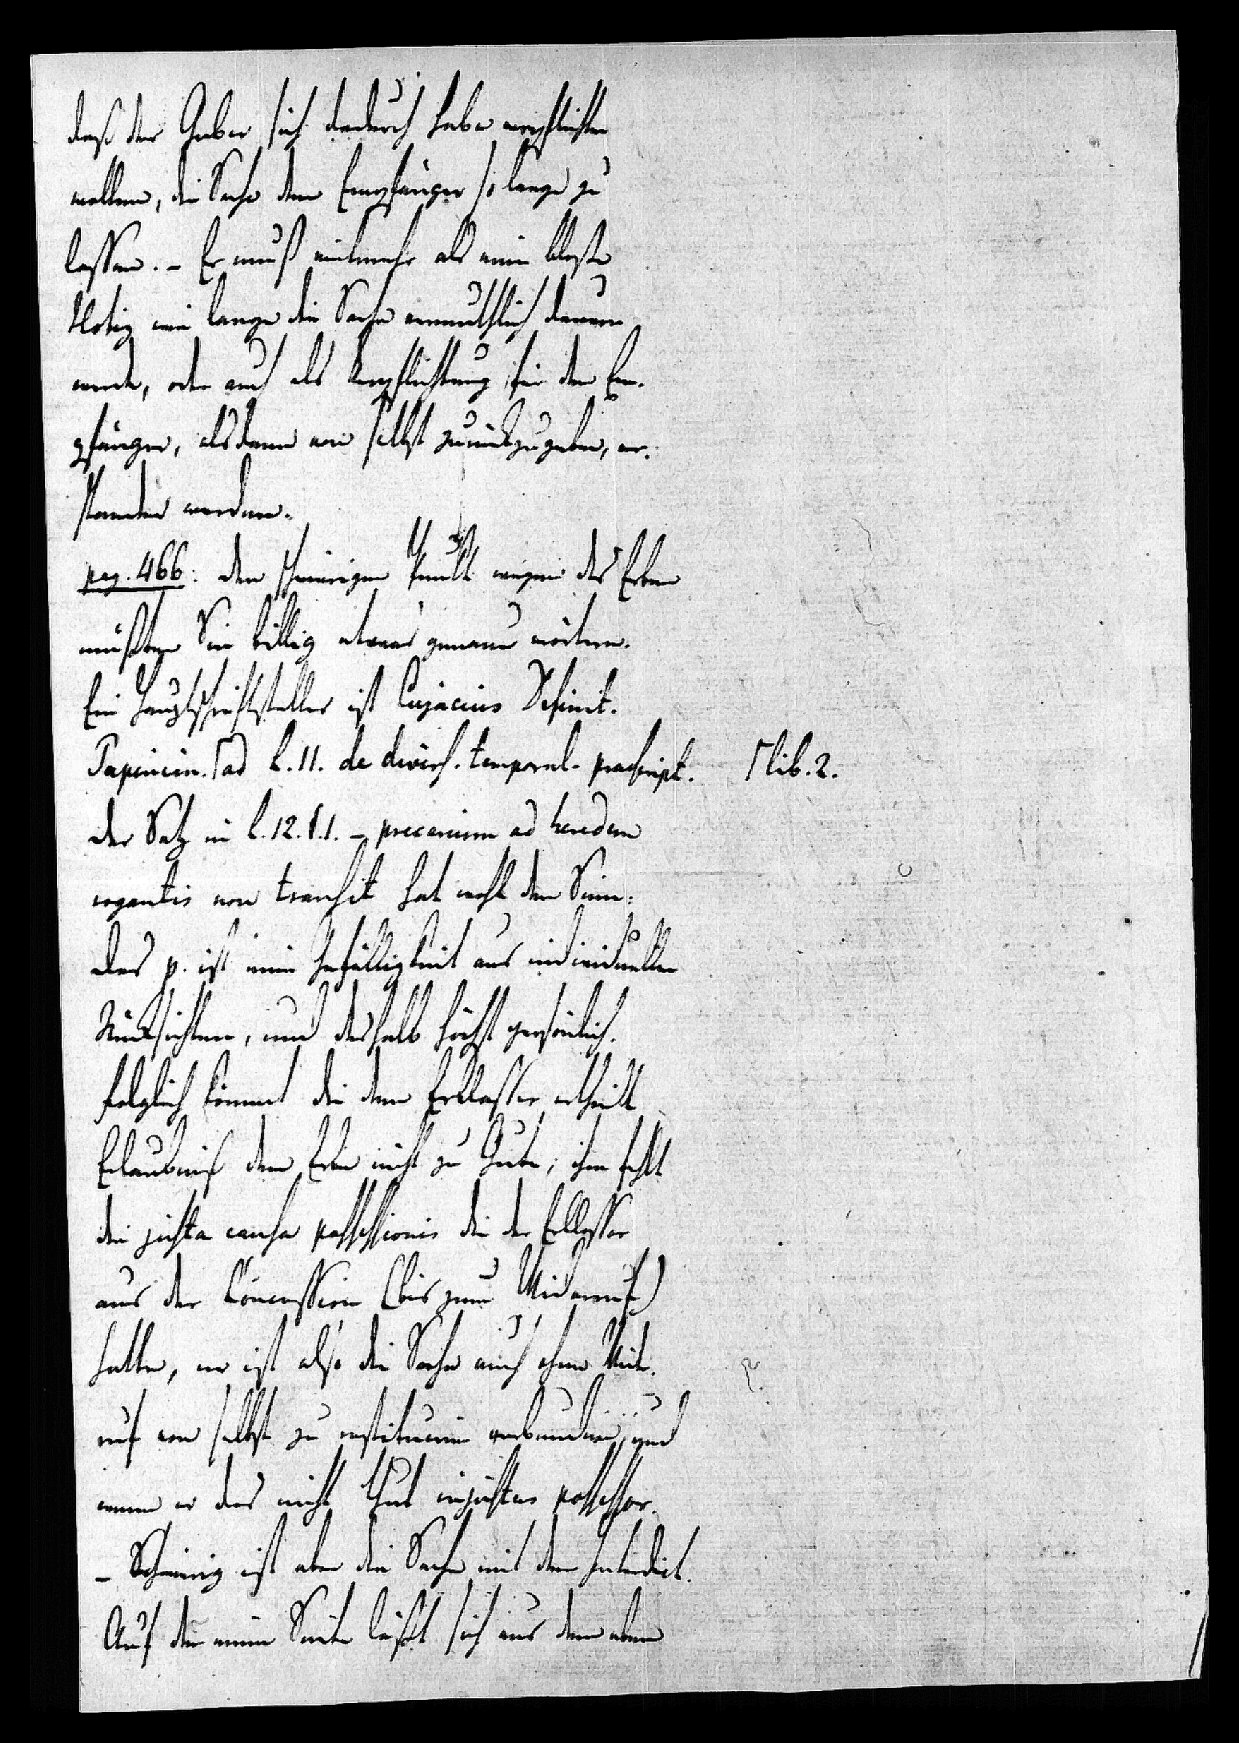 daß der Geber sich dadurch habe verpflichten
wollen, die Sache dem Empfänger so lange zu
lassen. – Er muß vielmehr als eine bloße
Notiz wie lange die Sache vermuthlich dauern
werde, oder auch als Verpflichtung für den Em-
pfänger, alsdann von selbst zurückzugeben, ver-
standen werden.
pag. 466: den schwierigen Punkt wegen des Erben
müßten Sie billig etwas genauer erörtern.
Ein Hauptschriftsteller ist Cujacius Definit.
Papinian. ⌈ad L. 11. de divers. temporal. praescript. ⌈lib. 2.
Der Satz in l. 12. §. 1. – precarium ad heredem
rogantis non transit hat wohl den Sinn:
Das p. ist eine Gefälligkeit aus individuellen
Rücksichten, und deshalb höchst persönlich.
folglich kommt die dem Erblasser ertheilte
Erlaubniß dem Erben nicht zu Gute; ihm fehlt
die justa causa possessionis die der Erblasser
aus der Concession (bis zum Widerruf)
hatte, er ist also die Sache auch ohne Wider-
ruf von selbst zu restituiren verbunden, und
wenn er das nicht thut injustus possessor.
– Schwierig ist aber die Sache mit dem Interdict.
Auf der einen Seite läßt sich aus dem eben